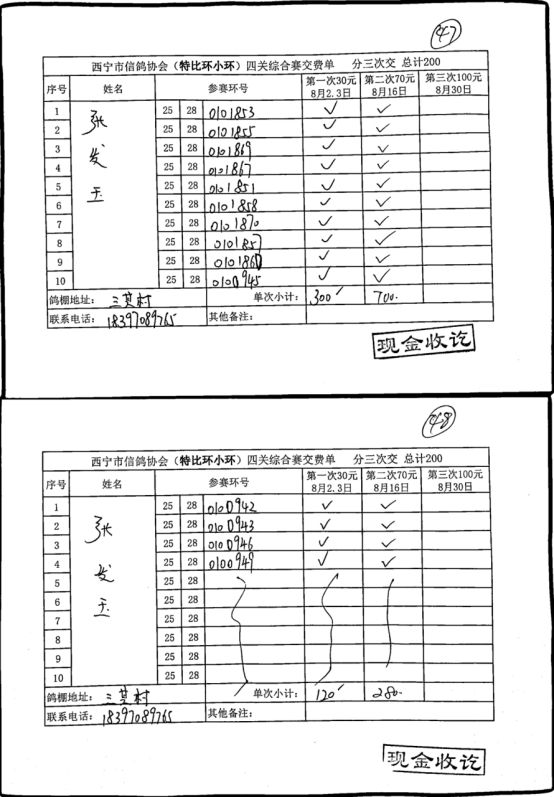 47
西宁市信鸽协会（特比环小环）四关综合赛交费单 分三次交 总计200
序号 姓名 参赛环号 第一次30元 8月2.3日 第二次70元 8月16日 第三次100元 8月30日
1 张发玉 25 28 0101853 ✓ ✓
2 25 28 0101855 ✓ ✓
3 25 28 0101869 ✓ ✓
4 25 28 0101867 ✓ ✓
5 25 28 0101851 ✓ ✓
6 25 28 0101858 ✓ ✓
7 25 28 0101870 ✓ ✓
8 25 28 0101857 ✓ ✓
9 25 28 0101860 ✓ ✓
10 25 28 0100945 ✓ ✓
鸽棚地址： 三其村 单次小计： 300 700.
联系电话： 18397089765 其他备注：
现金收讫
48
西宁市信鸽协会（特比环小环）四关综合赛交费单 分三次交 总计200
序号 姓名 参赛环号 第一次30元 8月2.3日 第二次70元 8月16日 第三次100元 8月30日
1 张发玉 25 28 0100942 ✓ ✓
2 25 28 0100943 ✓ ✓
3 25 28 0100946 ✓ ✓
4 25 28 0100949 ✓ ✓
5 25 28
6 25 28
7 25 28
8 25 28
9 25 28
10 25 28
鸽棚地址： 三其村 单次小计： 120 280.
联系电话： 18397089765 其他备注：
现金收讫